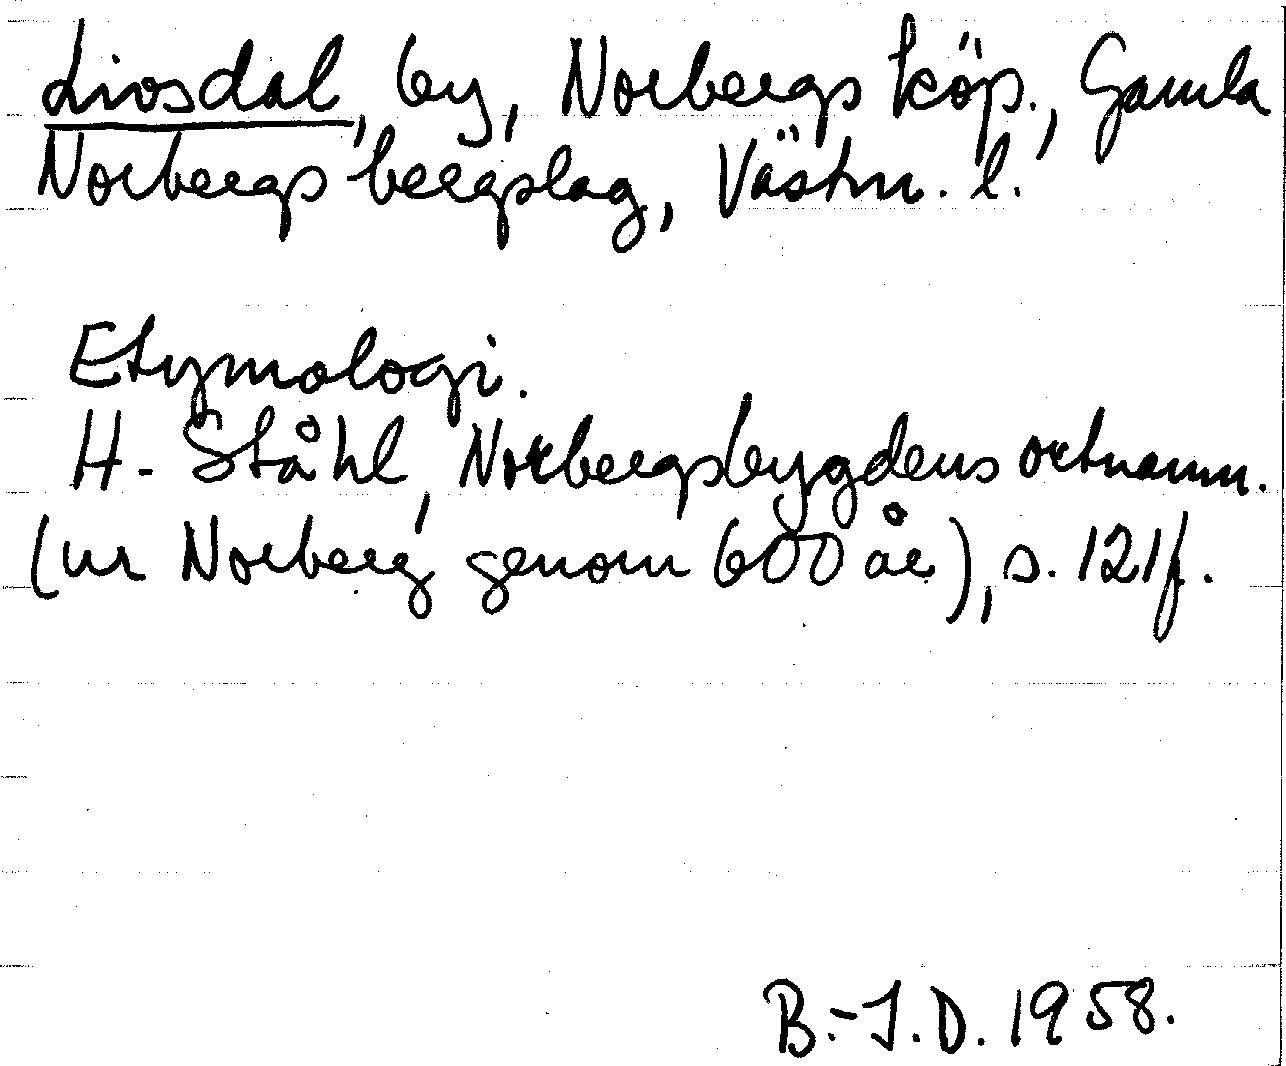 Livsdal, by, Norbergs köp., Gamla
Norbergs bergslag, Västm. l.
Etymologi.
H. Ståhl, Norbergsbygdens ortnamn.
(ur Norberg genom 600 år), s. 121f.
B.-I.D. 1958.